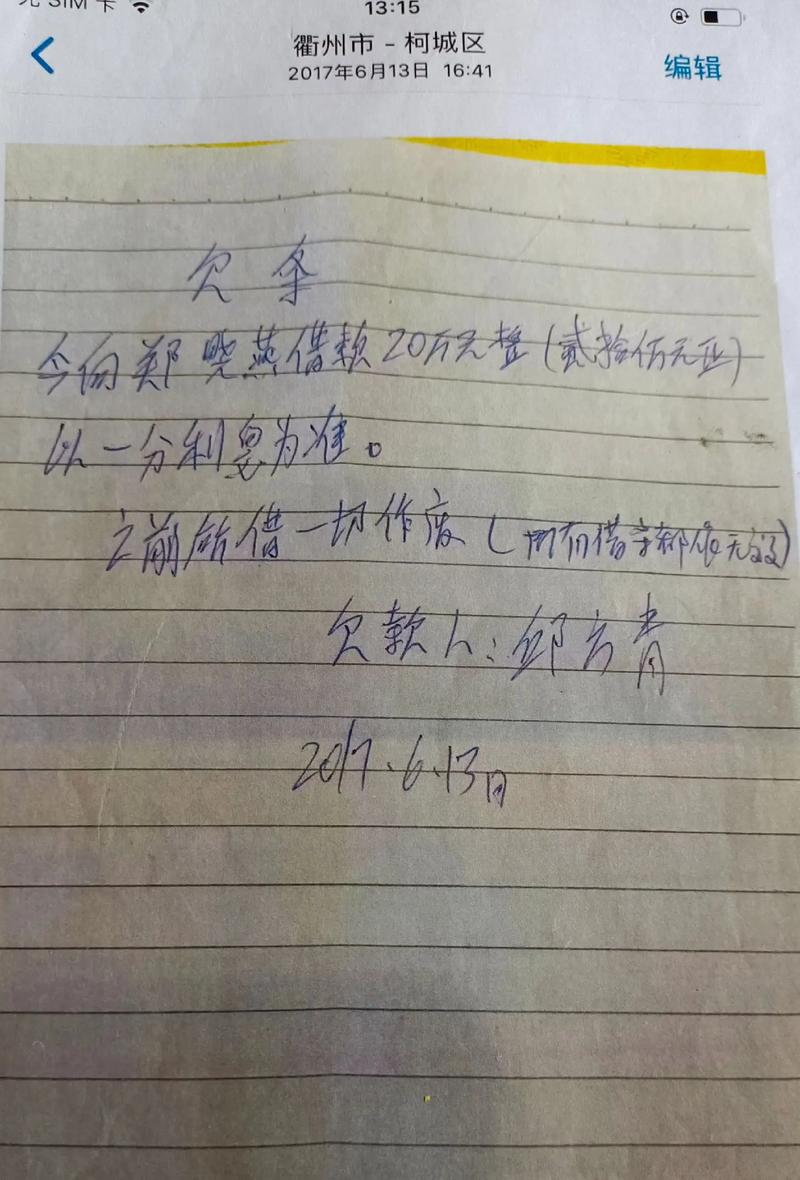 无 SIM 卡
13:15
衢州市 - 柯城区
2017年6月13日 16:41
编辑
欠条
今向郑晓燕借款20万元整(贰拾万元正)
以一分利息为准。
之前所借一切作废(所有借字都作无效)
欠款人:邱方青
2017.6.13日